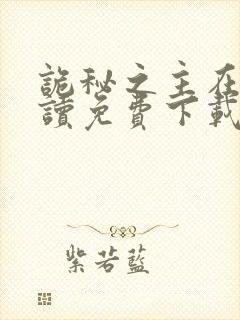 詭秘之主在
讀免費下載
紫若藍